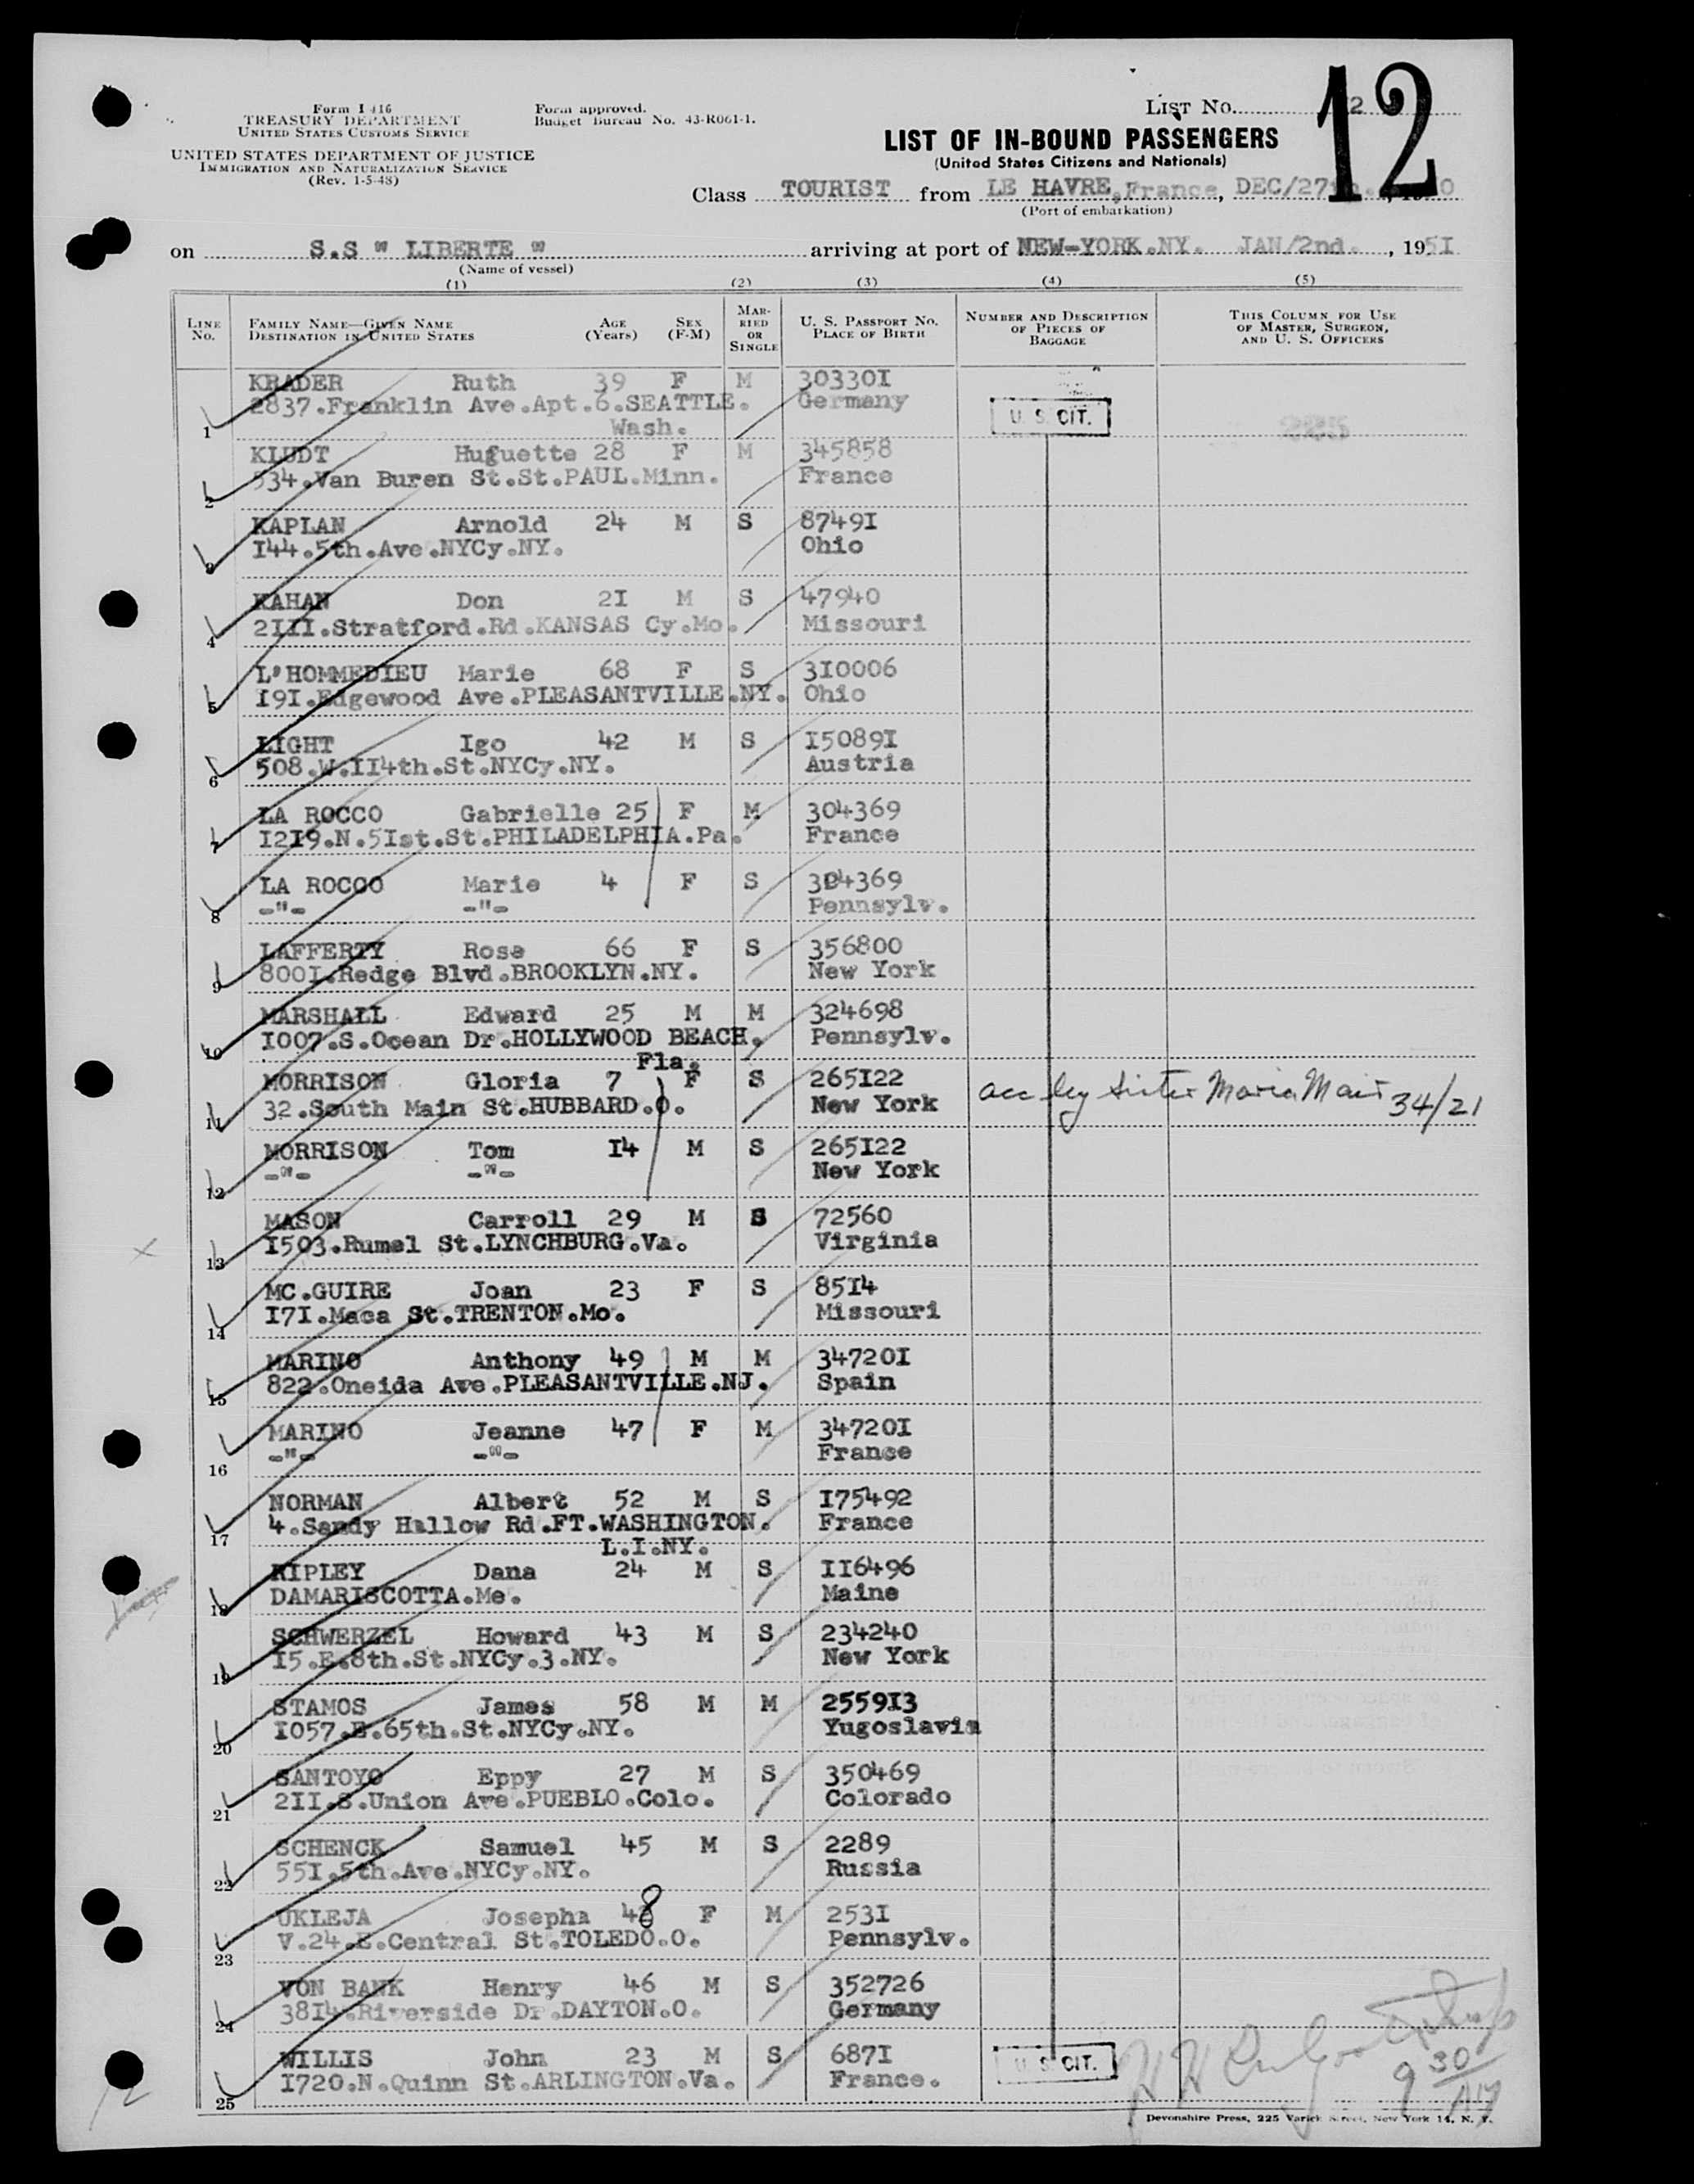 Form I 416
TREASURY DEPARTMENT
UNITED STATES CUSTOMS SERVICE
UNITED STATES DEPARTMENT OF JUSTICE
IMMIGRATION AND NATURALIZATION SERVICE
(Rev. 1-5-48)
Form approved.
Budget Bureau No. 43-R061-1.
LIST No. 12
LIST OF IN-BOUND PASSENGERS
(United States Citizens and Nationals)
Class TOURIST from LE HAVRE, France, DEC/27th.
(Port of embarkation)
on S.S " LIBERTE " arriving at port of NEW-YORK.NY. JAN/2nd. , 1951
(Name of vessel)
(1) (2) (3) (4) (5)
LINE No. FAMILY NAME—GIVEN NAME DESTINATION IN UNITED STATES AGE (Years) SEX (F-M) MARRIED OR SINGLE U. S. PASSPORT NO. PLACE OF BIRTH NUMBER AND DESCRIPTION OF PIECES OF BAGGAGE THIS COLUMN FOR USE OF MASTER, SURGEON, AND U. S. OFFICERS
KRADER Ruth 39 F M 30330I
2837.Franklin Ave.Apt.6.SEATTLE. Germany U. S. CIT.
1 Wash.
KLUDT Huguette 28 F M 345858
534.Van Buren St.St.PAUL.Minn. France
2
KAPLAN Arnold 24 M S 8749I
I44.5th.Ave.NYCy.NY. Ohio
3
KAHAN Don 2I M S 47940
2III.Stratford.Rd.KANSAS Cy.Mo. Missouri
4
L'HOMMEDIEU Marie 68 F S 3I0006
I9I.Edgewood Ave.PLEASANTVILLE.NY. Ohio
5
LIGHT Igo 42 M S I5089I
508.W.II4th.St.NYCy.NY. Austria
6
LA ROCCO Gabrielle 25 F M 304369
I2I9.N.5Ist.St.PHILADELPHIA.Pa. France
7
LA ROCCO Marie 4 F S 304369
-"- -"- Pennsylv.
8
LAFFERTY Rose 66 F S 356800
800I.Redge Blvd.BROOKLYN.NY. New York
9
MARSHALL Edward 25 M M 324698
I007.S.Ocean Dr.HOLLYWOOD BEACH. Pennsylv.
10 Fla.
MORRISON Gloria 7 F S 265I22
32.South Main St.HUBBARD.O. New York acc by sister Maria 34/21
11
MORRISON Tom I4 M S 265I22
-"- -"- New York
12
MASON Carroll 29 M S 72560
I503.Rumel St.LYNCHBURG.Va. Virginia
13
MC.GUIRE Joan 23 F S 85I4
I7I.Maca St.TRENTON.Mo. Missouri
14
MARINO Anthony 49 M M 34720I
822.Oneida Ave.PLEASANTVILLE.NJ. Spain
15
MARINO Jeanne 47 F M 34720I
-"- -"- France
16
NORMAN Albert 52 M S I75492
4.Sandy Hallow Rd.FT.WASHINGTON. France
17 L.I.NY.
RIPLEY Dana 24 M S II6496
DAMARISCOTTA.Me. Maine
18
SCHWERZEL Howard 43 M S 234240
I5.E.8th.St.NYCy.3.NY. New York
19
STAMOS James 58 M M 2559I3
I057.E.65th.St.NYCy.NY. Yugoslavia
20
SANTOYO Eppy 27 M S 350469
2II.S.Union Ave.PUEBLO.Colo. Colorado
21
SCHENCK Samuel 45 M S 2289
55I.5th.Ave.NYCy.NY. Russia
22
UKLEJA Josepha 48 F M 253I
V.24.E.Central St.TOLEDO.O. Pennsylv.
23
VON BANK Henry 46 M S 352726
38I4.Riverside Dr.DAYTON.O. Germany
24
WILLIS John 23 M S 687I
I720.N.Quinn St.ARLINGTON.Va. France. U. S. CIT.
25
9 30
Devonshire Press, 225 Varick Street, New York 14, N. Y.